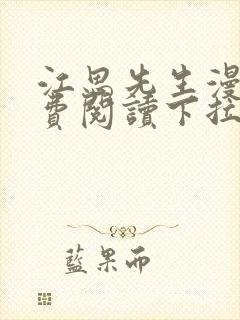 江暠先生漫
費閱讀下拉
藍果而